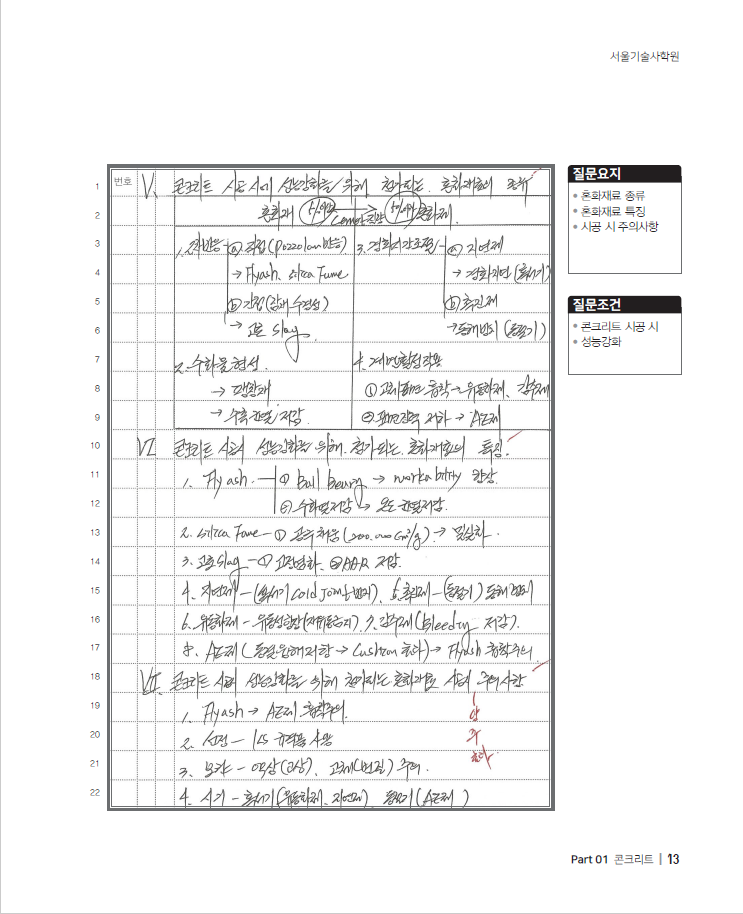 서울기술사학원
번호
1 Ⅴ. 콘크리트 시공시에 성능강화를 위해 첨가되는 혼화재료의 종류
2 혼화재 5%이상 Cement 중량 5%이하 혼화제
3 1. (Pozzolan반응) 3. 경화시간조절 - ⓐ 지연제
4 → Flyash, silica Fume → 경화지연 (서중기)
5 ⓑ 간접(잠재수경성) ⓑ 촉진제
6 → 고로 slag → 동해방지 (동절기)
7 2. 수화물 형성 4. 계면활성작용
8 → 팽창재 ① 흡착 → 유동화제, 감수제
9 → 수축균열 저감 ② 표면장력 저하 → AE제
10 Ⅵ. 콘크리트 시공시 성능강화를 위해 첨가되는 혼화재료의 특징
11 1. Flyash - ① Ball bearing → workability 향상
12 ② 수화열저감 → 온도균열저감
13 2. silica Fume - ① 공극채움 (200,000cm²/g) → 밀실화
14 3. 고로slag - ① ② AAR 저감
15 4. 지연제 - (서중기 Cold Joint 방지), 5. 촉진제 - (동절기) 동해방지
16 6. 유동화제 - 유동성향상 7. 감수제 (Bleeding 저감)
17 8. AE제 (동결융해저항 → Cushion 효과) → Flyash 흡착주의
18 Ⅶ. 콘크리트 시공시 성능강화를 위해 첨가되는 혼화재료 시공시 주의사항
19 1. Flyash → AE제 흡착주의
20 2. 선정 - KS 규격품 사용
21 3. 주의
22 4. 시기 - 서중기 (유동화제, 지연제), 동절기 (AE제)
질문요지
• 혼화재료 종류
• 혼화재료 특징
• 시공 시 주의사항
질문조건
• 콘크리트 시공 시
• 성능강화
Part 01 콘크리트 | 13